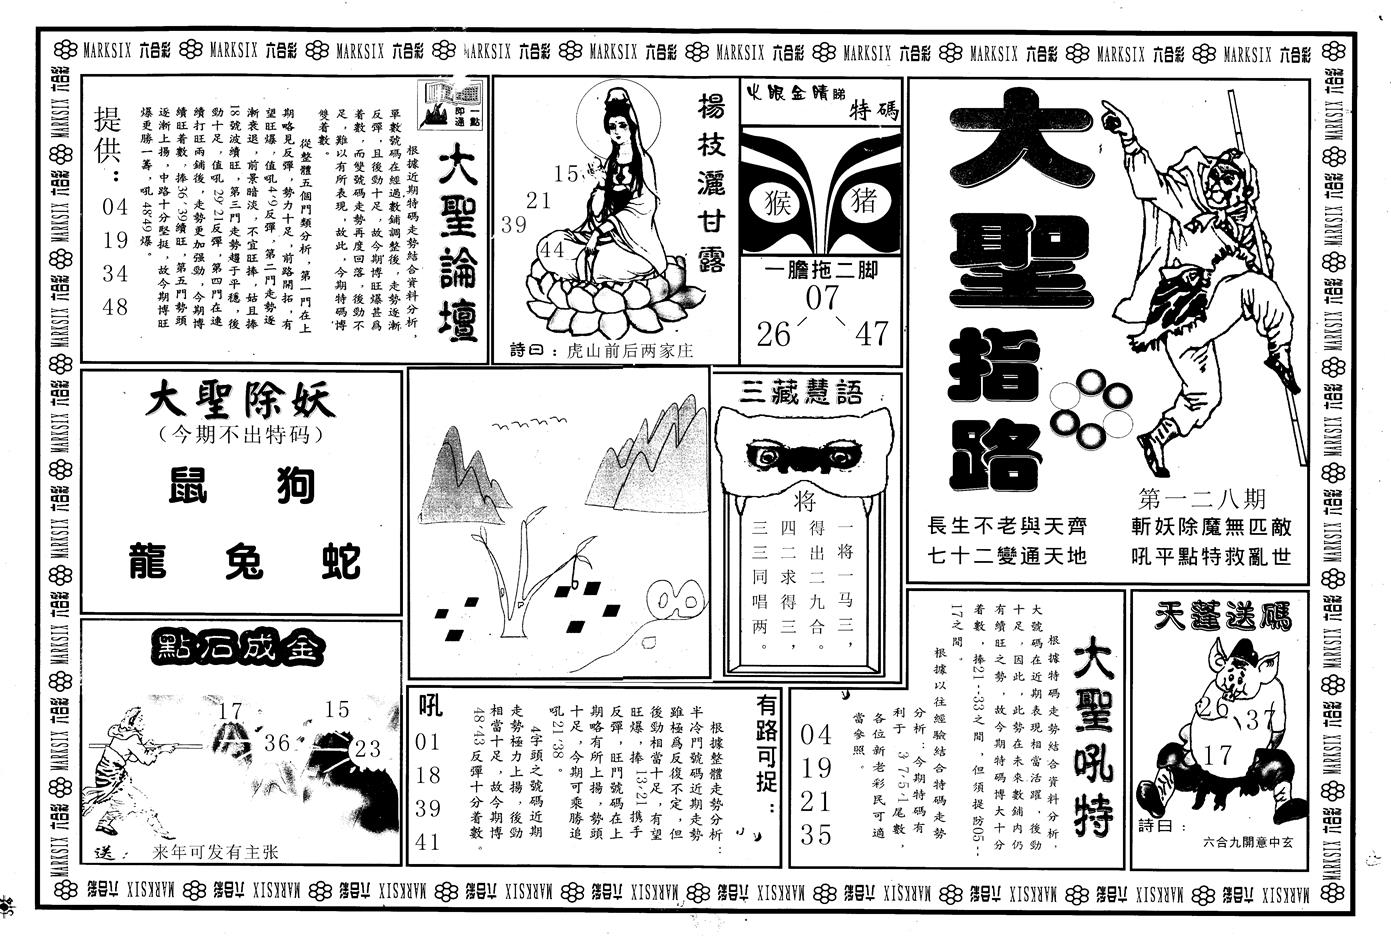 MARKSIX 六合彩 MARKSIX 六合彩 MARKSIX 六合彩 MARKSIX 六合彩 MARKSIX 六合彩 MARKSIX 六合彩 MARKSIX 六合彩 MARKSIX 六合彩 MARKSIX 六合彩 MARKSIX 六合彩
大聖指路
第一二八期
長生不老與天齊
斬妖除魔無匹敵
七十二變通天地
吼平點特救亂世
火眼金睛睇特碼
猴
猪
一膽拖二脚
07
26
47
楊枝灑甘露
15
21
39
44
詩曰：虎山前后两家庄
一點即通
大聖論壇
根據近期特碼走勢結合資料分析，
單數號碼在經過數鋪調整後，走勢逐漸
反彈，且後勁十足，故今期博旺爆甚爲
着數，而雙號碼走勢再度回落，後勁不
足，難以有所表現，故此，今期特碼博
雙着數。
從整體五個門類分析，第一門在上
期略見反彈，勢力十足，前路開拓，有
望旺爆，值吼4·9反彈，第二門走勢逐
漸衰退，前景暗淡，不宜旺捧，姑且捧
18號波續旺，第三門走勢趨于平穩，後
勁十足，值吼29·21反彈，第四門在連
續打旺兩鋪後，走勢更加强勁，今期博
續旺着數，捧36·39續旺，第五門勢頭
逐漸上揚，中路十分堅挺，故今期博旺
爆更勝一籌，吼48·49爆。
提供：
04
19
34
48
大聖除妖
（今期不出特码）
鼠
狗
龍
兔
蛇
三藏慧語
将
一将一马三，
得出二九合。
四二求得三，
三三同唱两。
點石成金
17
15
36
23
送：来年可发有主张
有路可捉：
根據整體走勢分析：
半冷門號碼近期走勢
雖極爲反復不定，但
後勁相當十足，有望
旺爆，捧13·21携手
反彈，旺門號碼在上
期略有所上揚，勢頭
十足，今期可乘勝追
吼21·38。
4字頭之號碼近期
走勢極力上揚，後勁
相當十足，故今期博
48·43反彈十分着數。
吼
01
18
39
41
大聖吼特
根據特碼走勢結合資料分析，
大號碼在近期表現相當活躍，後勁
十足，因此，此勢在未來數鋪内仍
有續旺之勢，故今期特碼博大十分
着數，捧21--33之間，但须提防05--
17之間。
根據以往經驗結合特碼走勢
分析：今期特碼有
利于 3·7·5·1尾數，
各位新老彩民可適
當參照。
04
19
21
35
天蓬送碼
26
37
17
詩曰：
六合九開意中玄
MARKSIX 六合彩 MARKSIX 六合彩 MARKSIX 六合彩 MARKSIX 六合彩 MARKSIX 六合彩 MARKSIX 六合彩 MARKSIX 六合彩 MARKSIX 六合彩 MARKSIX 六合彩 MARKSIX 六合彩